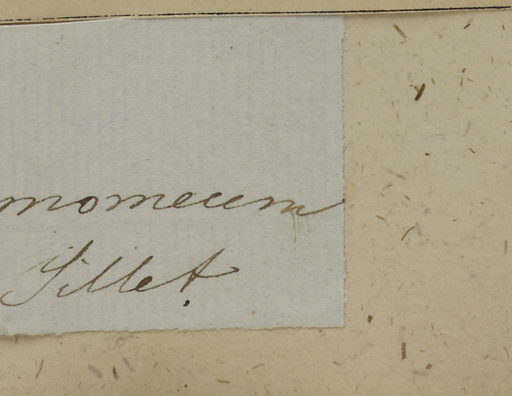 momeum
Sillet